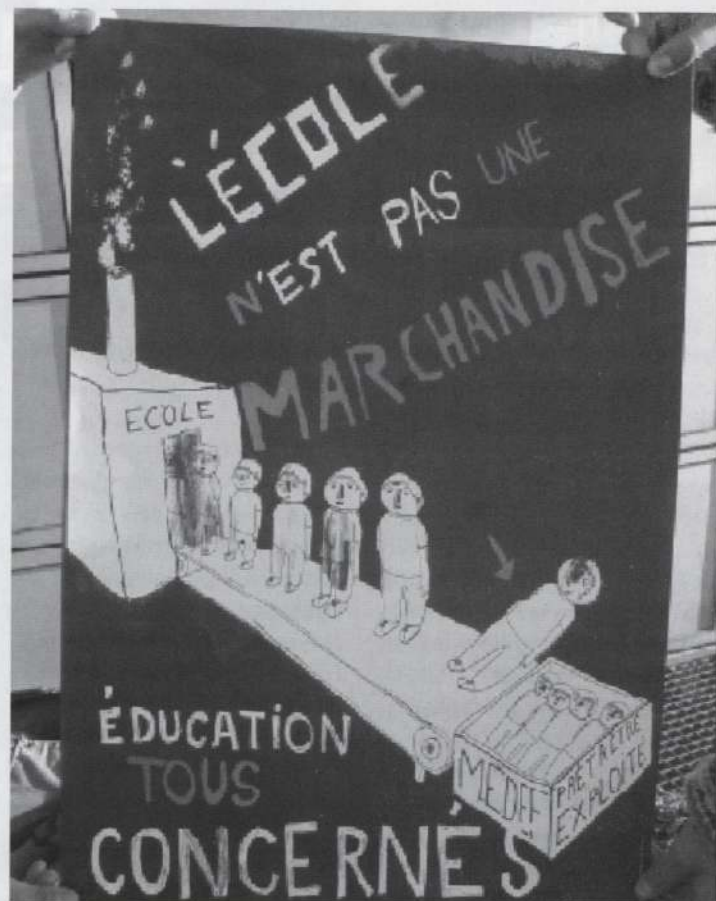 L'ÉCOLE
N'EST PAS UNE
MARCHANDISE
ECOLE
ÉDUCATION
TOUS
CONCERNÉS
MEDEF
PRÊT À ÊTRE
EXPLOITÉ